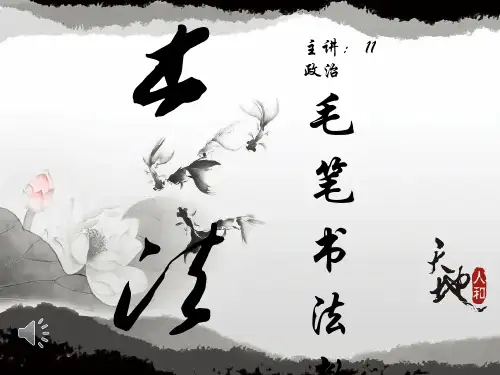 书法
主讲： 11
政治
毛笔书法
天地
人和